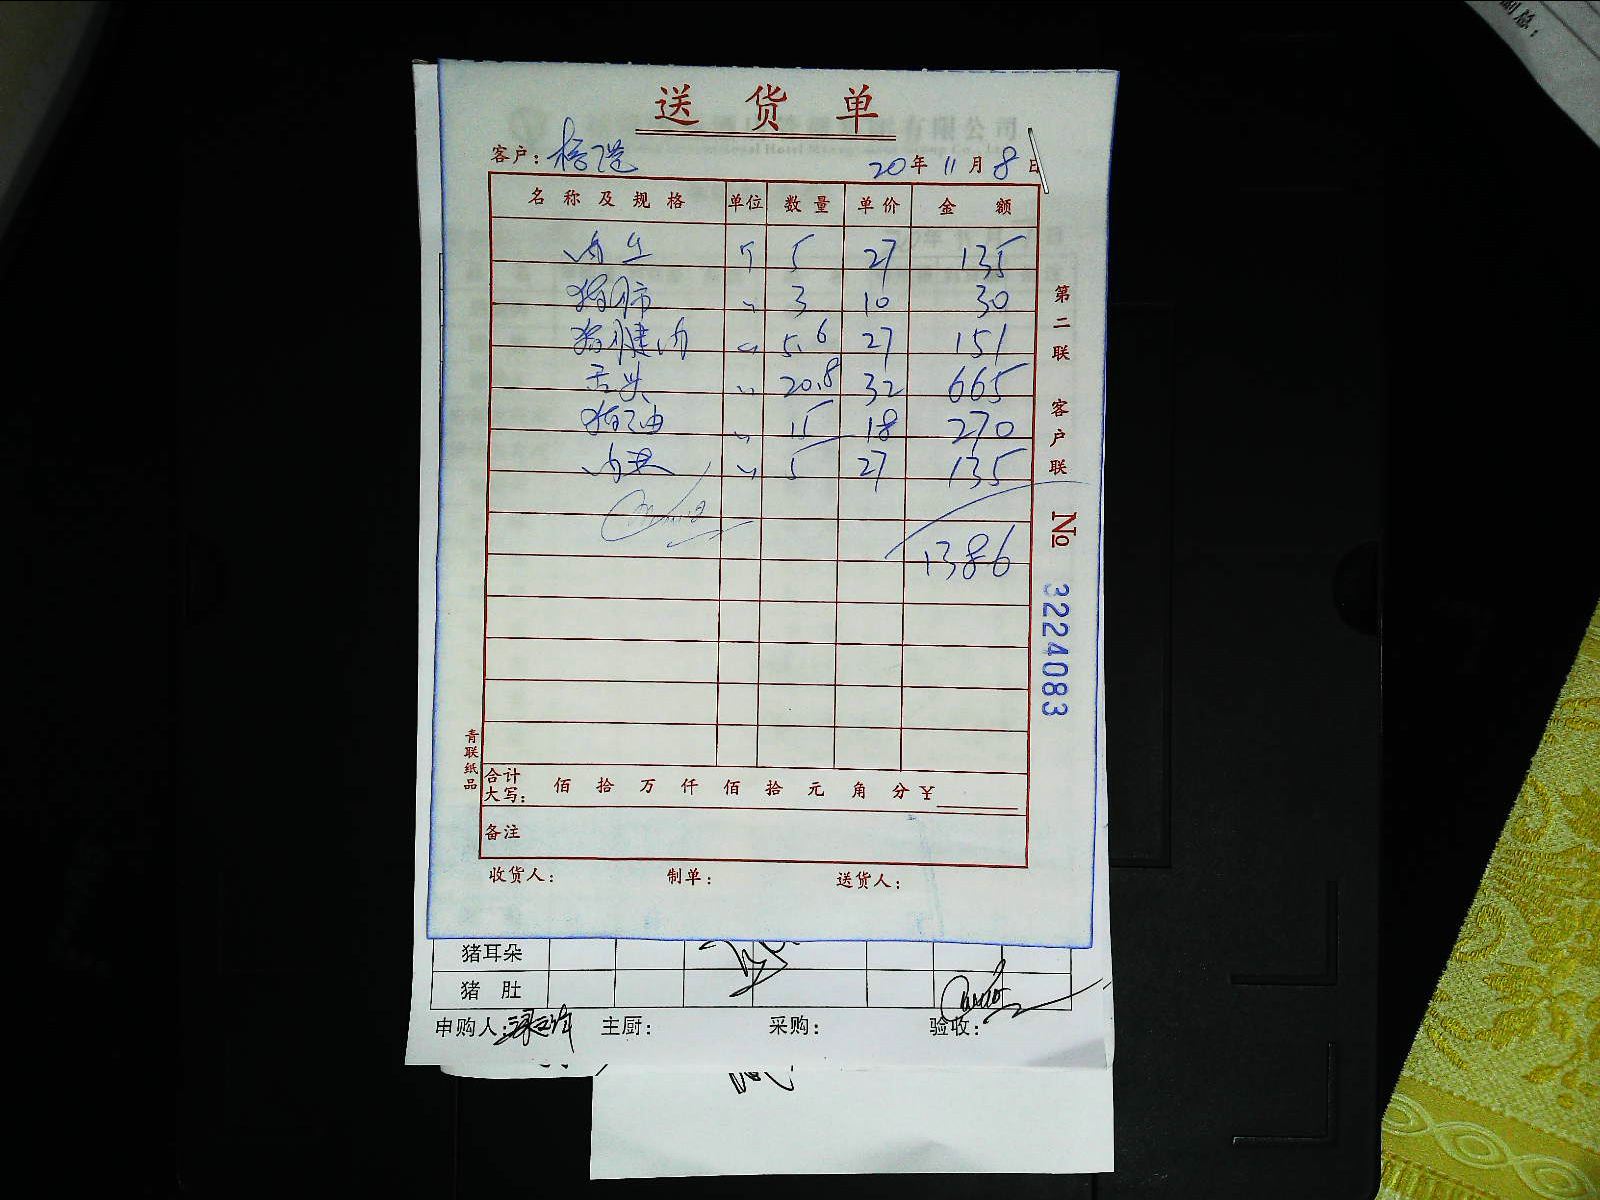 副总:
送货单
客户:
20年11月8日
名称及规格 单位 数量 单价 金额
肉丝 斤 5 27 135
猪肺 〃 3 10 30
猪腱肉 〃 5.6 27 151
舌头 〃 20.8 32 665
猪油 〃 15 18 270
〃 5 27 135
1386
第二联 客户联
No 3224083
青联纸品
合计大写: 佰 拾 万 仟 佰 拾 元 角 分 ¥
备注
收货人: 制单: 送货人:
猪耳朵
猪肚
申购人: 主厨: 采购: 验收: